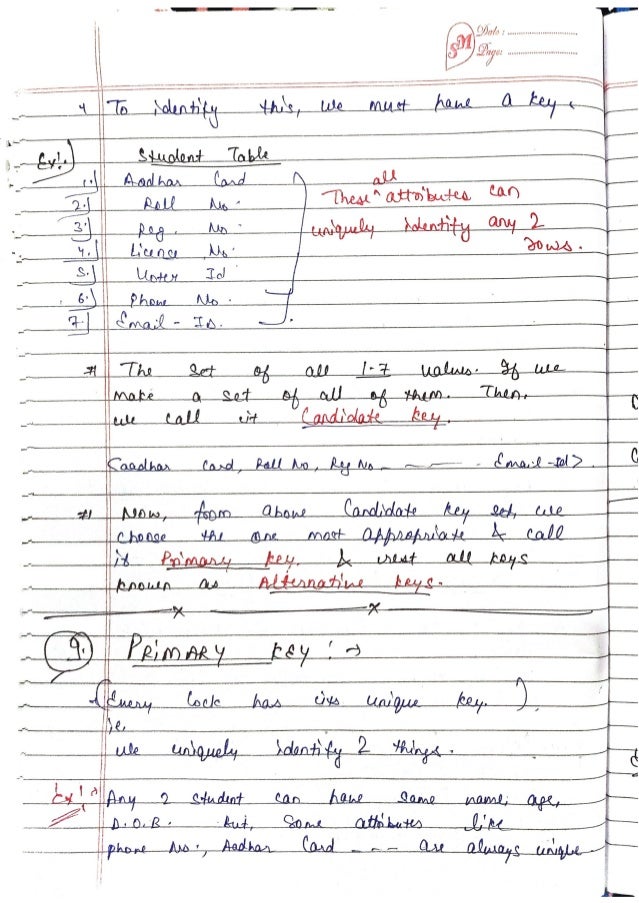 SM Date : ..............
Page: ..............
4 To identify this, we must have a key.
Ex!.
Student Table
1. Aadhar Card
2. Roll No.
3. Reg. No.
4. Licence No.
5. Voter Id
6. Phone No.
7. Email - ID.
These ^ all attributes can
uniquely identify any 2
rows.
# The set of all 1-7 values. If we
make a set of all of them. Then,
we call it Candidate key.
{aadhar card, Roll No, Reg No - - - Email-Id}
# Now, from above Candidate key set, we
choose the one most appropriate & call
it Primary key. & rest all keys
known as Alternative keys.
x x
9. PRIMARY KEY : →
(Every lock has its unique key.)
ie,
we uniquely identify 2 things.
Ex! → Any 2 student can have same name, age,
D.O.B. But, some attributes like
phone No., Aadhar Card - - - are always unique